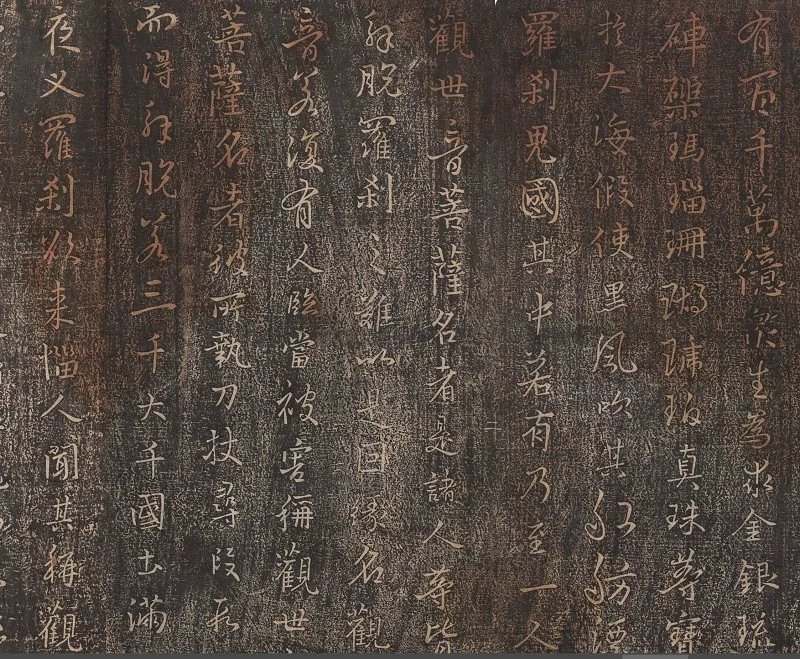 有百千萬億衆生為求金銀琉
硨磲瑪瑙珊瑚琥珀真珠等寶入
於大海假使黑風吹其船舫漂
羅剎鬼國其中若有乃至一人
觀世音菩薩名者是諸人等皆
解脫羅剎之難以是因緣名觀
音若復有人臨當被害稱觀世
菩薩名者彼所執刀杖尋段
而得解脫若三千大千國土滿
夜叉羅剎欲来惱人聞其稱觀